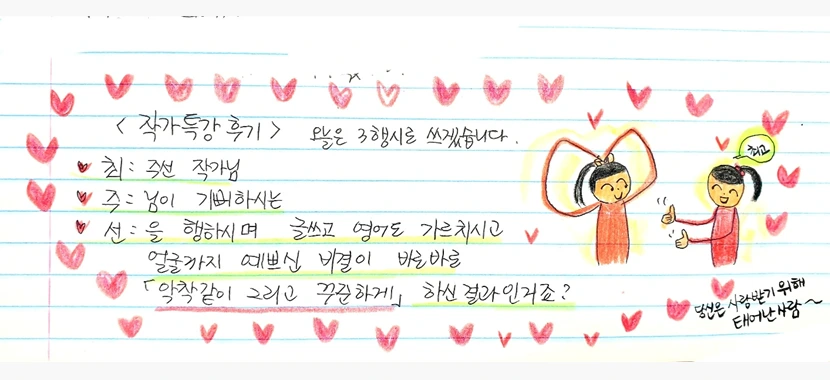 <작가특강 후기> 오늘은 3행시를 쓰겠습니다.
최: 주선 작가님
주: 님이 기뻐하시는
선: 을 행하시며 글쓰고 영어도 가르치시고
얼굴까지 예쁘신 비결이 바로바로
「악착같이 그리고 꾸준하게」 하신 결과인거죠?
최고
당신은 사랑받기 위해
태어난 사람~